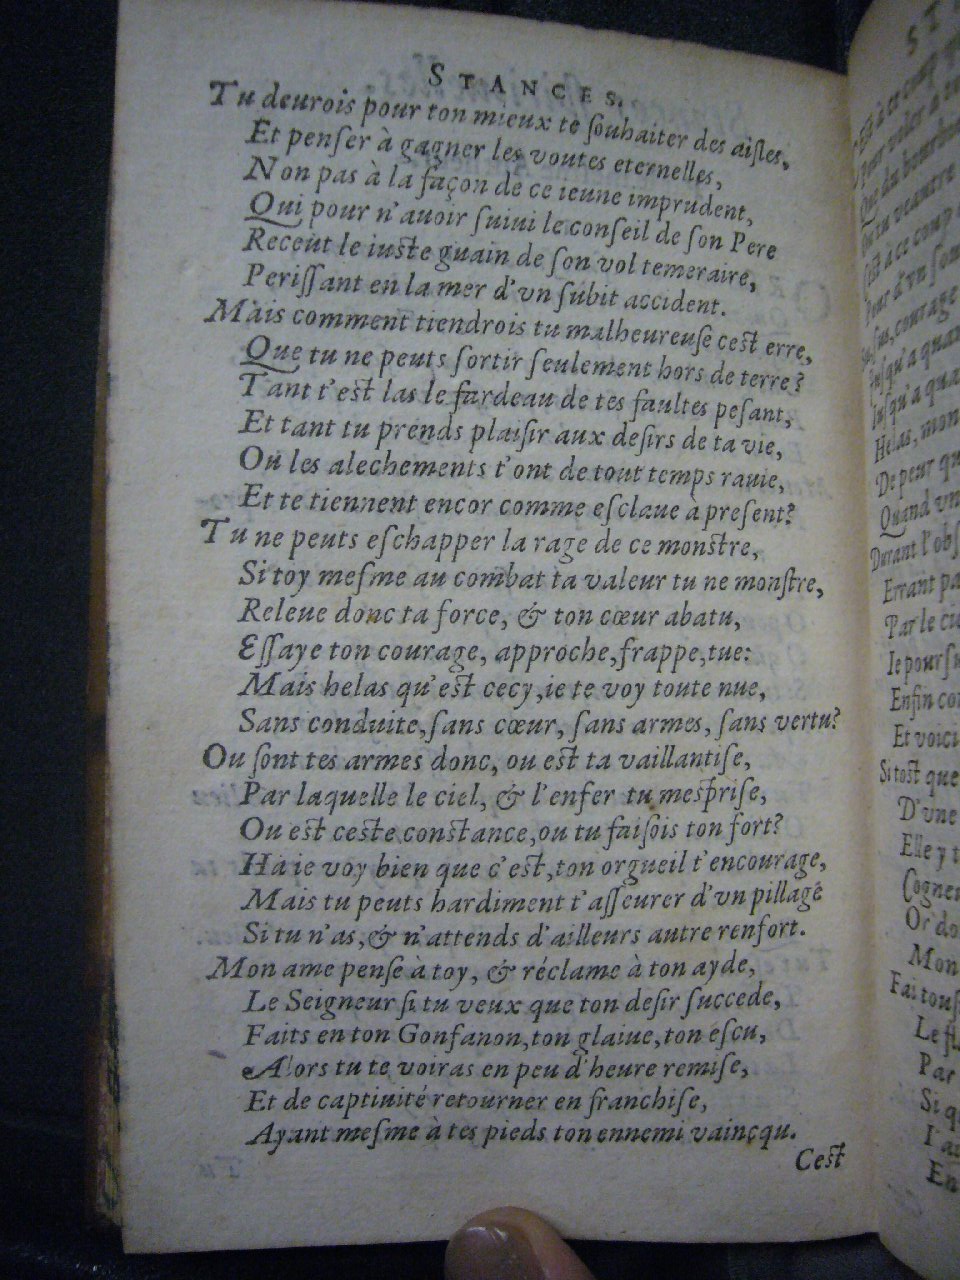 STANCES.
Tu deurois pour ton mieux te souhaiter des aisles,
Et penser à gagner les voutes eternelles,
Non pas à la façon de ce ieune imprudent,
Qui pour n'auoir suiui le conseil de son Pere
Receut le iuste guain de son vol temeraire,
Perissant en la mer d'vn subit accident.
Mais comment tiendrois tu malheureuse cest erre,
Que tu ne peuts sortir seulement hors de terre?
Tant t'est las le fardeau de tes faultes pesant,
Et tant tu prends plaisir aux desirs de ta vie,
Où les alechements t'ont de tout temps rauie,
Et te tiennent encor comme esclaue à present?
Tu ne peuts eschapper la rage de ce monstre,
Si toy mesme au combat ta valeur tu ne monstre,
Releue donc ta force, & ton cœur abatu,
Essaye ton courage, approche, frappe, tue:
Mais helas qu'est cecy, ie te voy toute nue,
Sans conduite, sans cœur, sans armes, sans vertu?
Ou sont tes armes donc, ou est ta vaillantise,
Par laquelle le ciel, & l'enfer tu mesprise,
Ou est ceste constance, ou tu faisois ton fort?
Hà ie voy bien que c'est, ton orgueil t'encourage,
Mais tu peuts hardiment t'asseurer d'vn pillage
Si tu n'as, & n'attends d'ailleurs autre renfort.
Mon ame pense à toy, & réclame à ton ayde,
Le Seigneur si tu veux que ton desir succede,
Faits en ton Gonfanon, ton glaiue, ton escu,
Alors tu te voiras en peu d'heure remise,
Et de captiuité retourner en franchise,
Ayant mesme à tes pieds ton ennemi vainçqu.
Cest
ST
Est à ce coup
Pour voler à
Que du bourbi
Ou tu veautre
Est à ce coup
Pour d'vn som
Sus, courage
Iusqu'a quan
Iusqu'a qua
Helas, mon
De peur qu
Quand vn
Durant l'obs
Errant pa
Par le cie
Ie poursu
Enfin co
Et voici
Si tost que
D'vne
Elle y t
Cogne
Or do
Mon
Fai tous
Le fl
Par
Si q
I'a
En